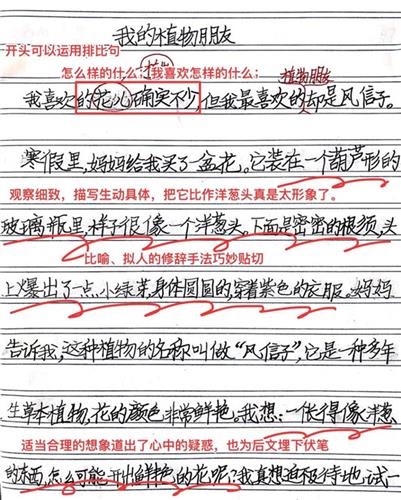 我的植物朋友
开头可以运用排比句
怎么样的什么；我喜欢怎样的什么；
植物
植物朋友
我喜欢的花儿确实不少，但我最喜欢的却是风信子。
寒假里，妈妈给我买了一盆花。它装在一个葫芦形的
观察细致，描写生动具体，把它比作洋葱头真是太形象了。
玻璃瓶里，样子很像一个洋葱头。下面是密密的根须，头
比喻、拟人的修辞手法巧妙贴切
上爆出了一点小绿芽，身体圆圆的，穿着紫色的衣服。妈妈
告诉我，这种植物的名称叫做“风信子”，它是一种多年
生草本植物，花的颜色非常鲜艳。我想：一个长得像洋葱
适当合理的想象道出了心中的疑惑，也为后文埋下伏笔
的东西，怎么可能开出鲜艳的花呢？我真想迫不及待地试一